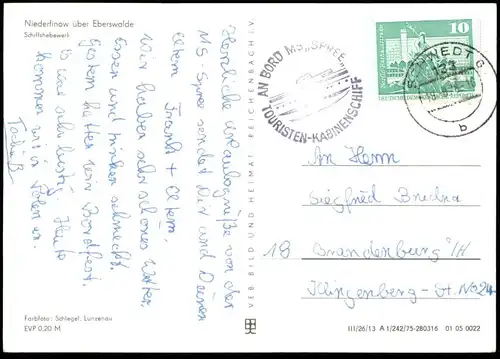 Niederfinow über Eberswalde
Schiffshebewerk
Herzliche Urlaubsgrüße von der
MS-Spree sendet Dir und Deinen
Eltern Frank + Eltern.
Wir haben sehr schönes Wetter,
Essen und trinken schmeckt.
Gestern hatten wir Bordfest.
Es war sehr lustig. Heute
kommen wir in Polen an.
Farbfoto: Schlegel, Lunzenau
EVP 0,20 M
VEB BILD UND HEIMAT REICHENBACH I. V.
AN BORD MS „SPREE“
TOURISTEN-KABINENSCHIFF
10
SCHWEDT
133
b
An Herrn
Siegfried
18 Brandenburg/H
Klingenberg-Str. No 24
III/26/13 A 1/242/75-280316 01 05 0022